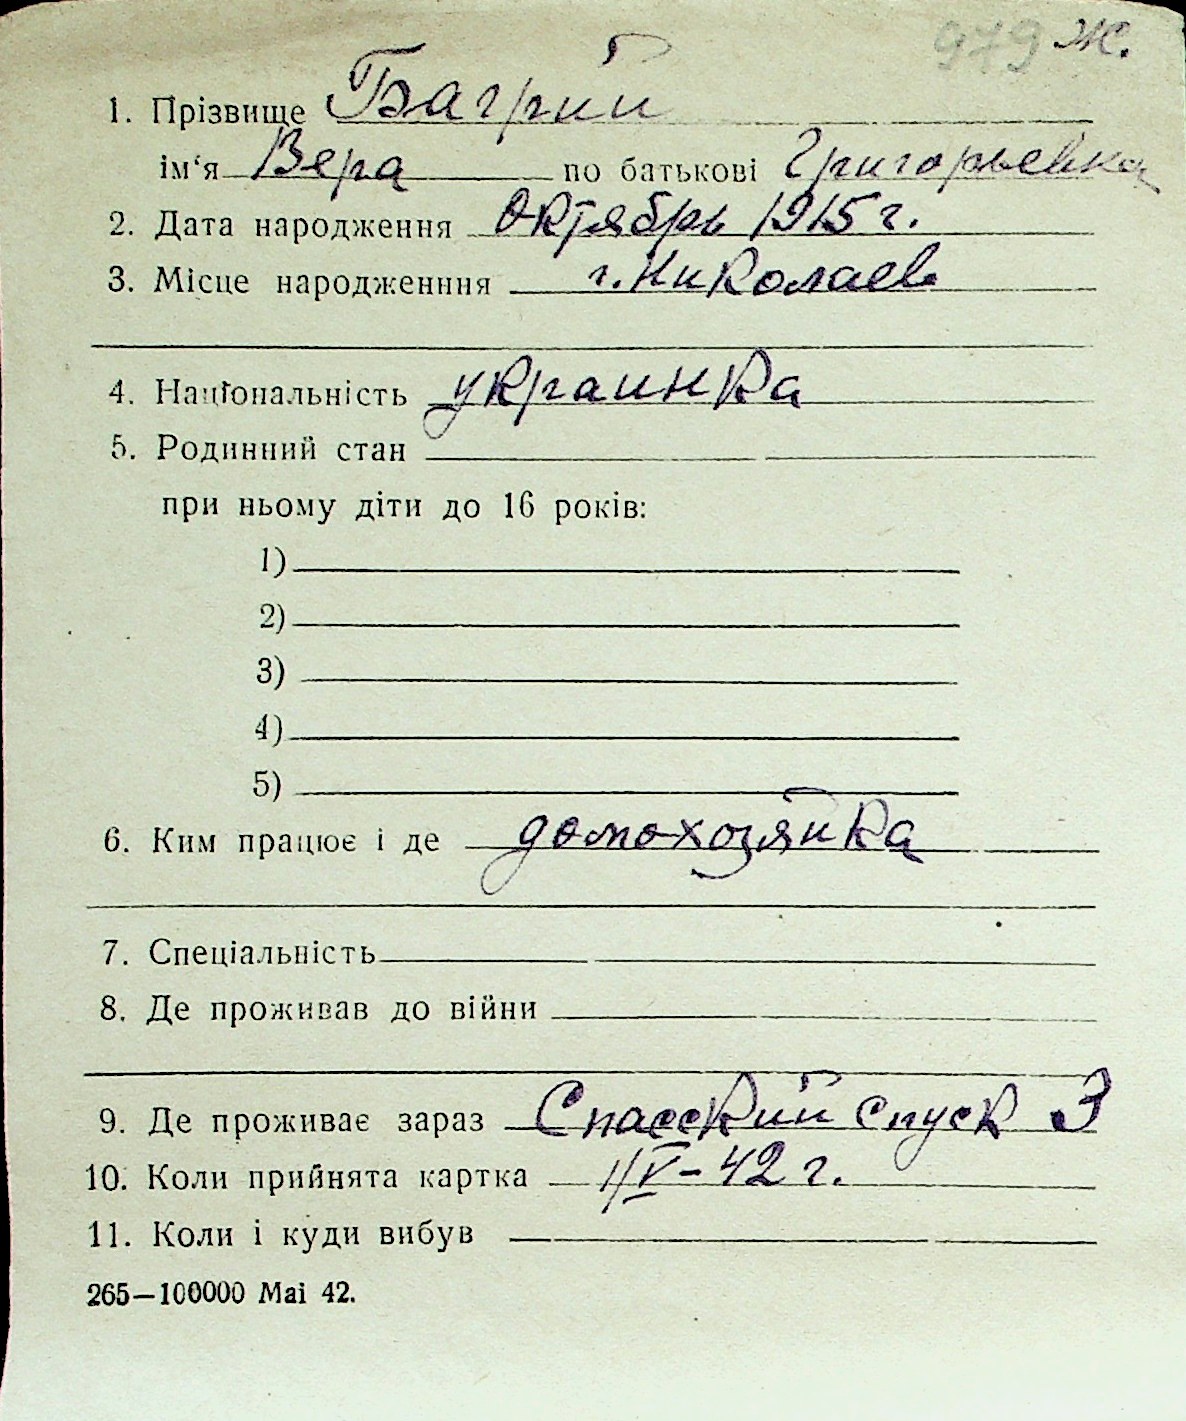 979 Ж.
1. Прізвище Багрий
ім‘я Вера по батькові Григорьевна
2. Дата народження Октябрь 1915 г.
3. Місце народженння г. Николаев
4. Національність украинка
5. Родинний стан
при ньому діти до 16 років:
1)
2)
3)
4)
5)
6. Ким працює і де домохозяйка
7. Спеціальність
8. Де проживав до війни
9. Де проживає зараз Спасский спуск 3
10. Коли прийнята картка 1/V-42 г.
11. Коли і куди вибув
265—100000 Mai 42.